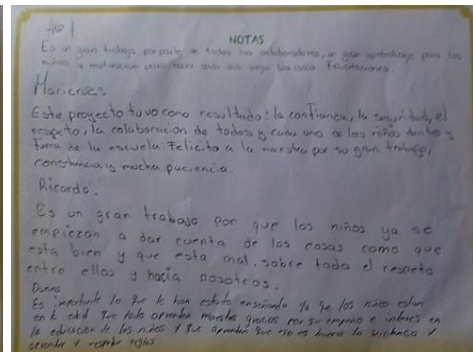 NOTAS
Es un gran trabajo por parte de todos los colaboradores, un gran aprendizaje para los
niños y motivación para hacer cada día mejor las cosas. Felicitaciones.
Maricruz:
Este proyecto tuvo como resultado: la confianza, la seguridad, el
respeto, la colaboración de todos y cada uno de los niños dentro y
fuera de la escuela. Felicito a la maestra por su gran trabajo,
constancia y mucha paciencia.
Ricardo.
Es un gran trabajo por que los niños ya se
empiezan a dar cuenta de las cosas como que
esta bien y que esta mal, sobre todo el respeto
entre ellos y hacia nosotros.
Es importante lo que le han estado enseñando ya que los niños estan
en la edad que todo aprenden maestra gracias por su empeño e interes en
la educación de los niños y que aprendan que no es buena la violencia y
aprender y respetar reglas